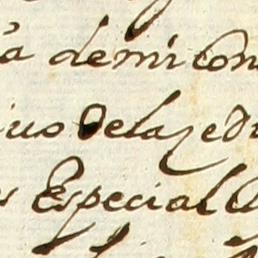 a demi con
ius de la zed
s Especial